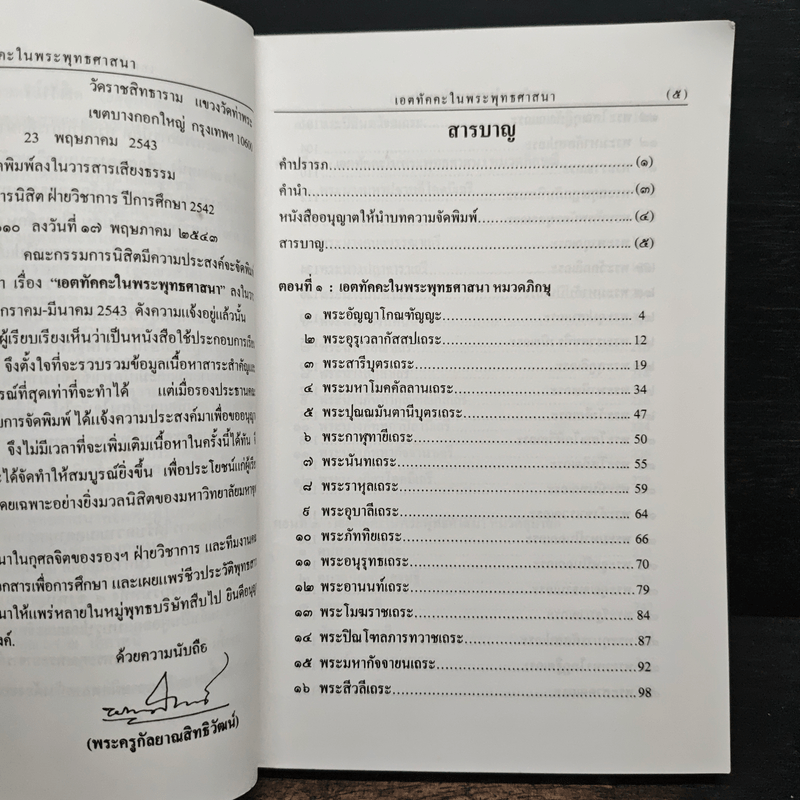 คะในพระพุทธศาสนา
วัดราชสิทธาราม แขวงวัดท่าพระ
เขตบางกอกใหญ่ กรุงเทพฯ 10600
23 พฤษภาคม 2543
พิมพ์ลงในวารสารเสียงธรรม
การนิสิต ฝ่ายวิชาการ ปีการศึกษา 2542
๑๐ ลงวันที่ ๑๗ พฤษภาคม ๒๕๔๓
คณะกรรมการนิสิตมีความประสงค์จะจัดพิมพ์
เรื่อง "เอตทัคคะในพระพุทธศาสนา" ลงใน
กราคม-มีนาคม 2543 ดังความแจ้งอยู่แล้วนั้น
ผู้เรียบเรียงเห็นว่าเป็นหนังสือใช้ประกอบการเรีย
จึงตั้งใจที่จะรวบรวมข้อมูลเนื้อหาสาระสำคัญและ
รณ์ที่สุดเท่าที่จะทำได้ แต่เมื่อรองประธานคณะ
ยการจัดพิมพ์ ได้แจ้งความประสงค์มาเพื่อขออนุญา
จึงไม่มีเวลาที่จะเพิ่มเติมเนื้อหาในครั้งนี้ได้ทัน
ะได้จัดทำให้สมบูรณ์ยิ่งขึ้น เพื่อประโยชน์แก่ผู้เรีย
ดยเฉพาะอย่างยิ่งมวลนิสิตของมหาวิทยาลัยมหาจุ
นาในกุศลจิตของรองฯ ฝ่ายวิชาการ และทีมงานคณ
อกสารเพื่อการศึกษา และเผยแพร่ชีวประวัติพุทธสา
นาให้แพร่หลายในหมู่พุทธบริษัทสืบไป
งค์.
ด้วยความนับถือ
(พระครูกัลยาณสิทธิวัฒน์)
เอตทัคคะในพระพุทธศาสนา (๕)
สารบาญ
คำปรารภ (๑)
คำนำ (๓)
หนังสืออนุญาตให้นำบทความจัดพิมพ์ (๔)
สารบาญ (๕)
ตอนที่ ๑ : เอตทัคคะในพระพุทธศาสนา หมวดภิกษุ
๑ พระอัญญาโกณฑัญญะ 4
๒ พระอุรุเวลากัสสปเถระ 12
๓ พระสารีบุตรเถระ 19
๔ พระมหาโมคคัลลานเถระ 34
๕ พระปุณณมันตานีบุตรเถระ 47
๖ พระกาฬุทายีเถระ 50
๗ พระนันทเถระ 55
๘ พระราหุลเถระ 59
๙ พระอุบาลีเถระ 64
๑๐ พระภัททิยเถระ 66
๑๑ พระอนุรุทธเถระ 70
๑๒ พระอานนท์เถระ 79
๑๓ พระโมฆราชเถระ 84
๑๔ พระปิณโฑลภารทวาชเถระ 87
๑๕ พระมหากัจจายนเถระ 92
๑๖ พระสีวลีเถระ 98